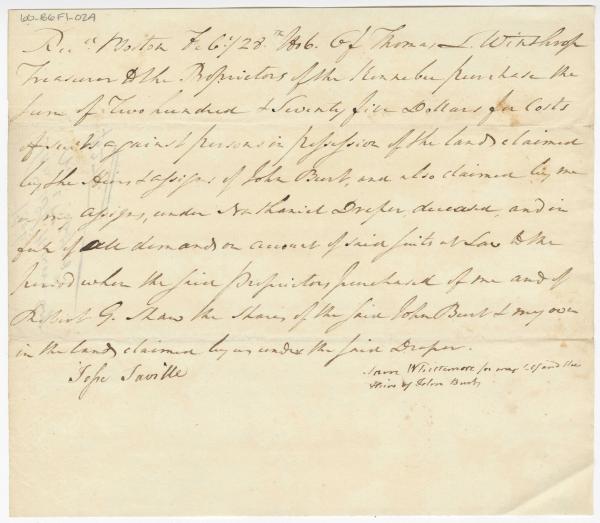 60-B6F1-02A
Rec.d Boston Feby. 28th 1816. Of Thomas L. Winthrop
Treasurer to the Proprietors of the Kennebec purchase the
sum of Two hundred & Seventy five Dollars for Costs
of suits against persons in possession of the land claimed
by the Heirs & assigns of John Burt, and also claimed by me
or my assigns, under Nathaniel Draper, deceased, and in
full of all demands on account of said suits at Law to the
period when the said Proprietors purchased of me and of
Robert G. Shaw the shares of the said John Burt & my own
in the land claimed by us under the said Draper.
Jesse Saville
Whittemore for myself and the
Heirs of John Burt